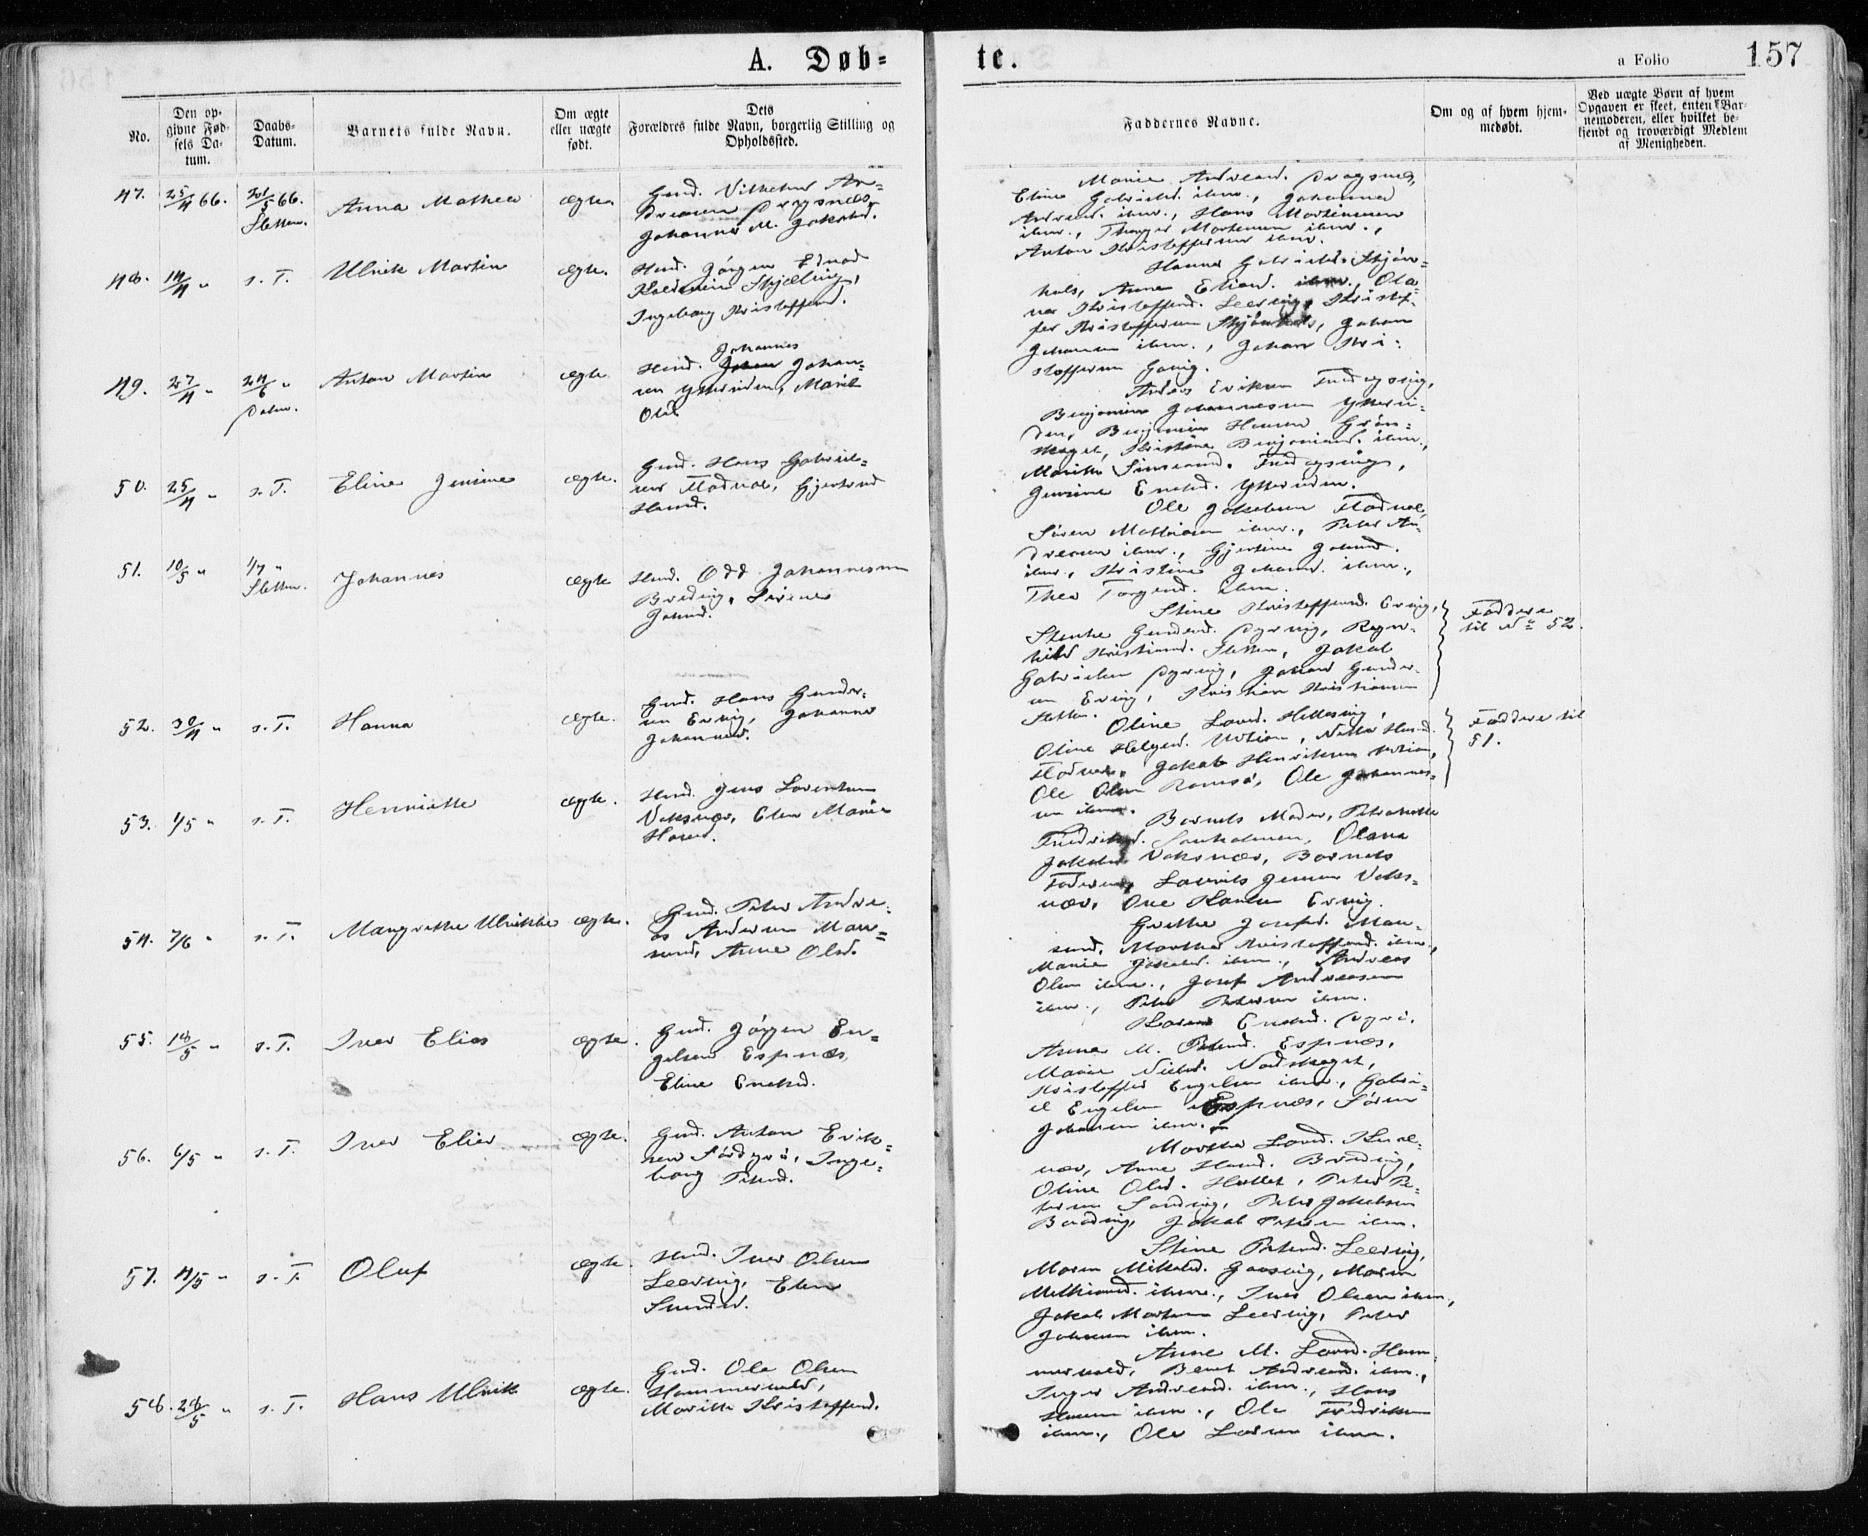 A. Døb=
te.
a Folio
157
No.
Den op=
givne Fød=
sels Da=
tum.
Daabs=
Datum.
Barnets fulde Navn.
Om ægte
eller uægte
født.
Dets
Forældres fulde Navn, borgerlig Stilling og
Opholdssted.
Faddernes Navne.
Om og af hvem hjem=
medøbt.
Ved uægte Børn af hvem
Opgaven er skeet, enten Bar=
nemoderen, eller hvilket be=
kjendt og troværdigt Medlem
af Menigheden.
47. 25/4 66. 21/5 66. Anna Mathea ægte. Gmd. Vilhelm An=
Sletten. dreasen Dragsnes,
Johanna M. Jakobsd.
Marie Andreasd. Dragsnes,
Eline Gabrielsd. ibm., Johanna
Andreasd. ibm., Hans Mortensen
ibm., Mortensen ibm.,
Anton Kristoffersen ibm.
48. 14/4 " s. T. Ulrik Martin ægte. Hmd. Jørgen
Skjelvig,
Ingeborg Kristoffersd.
Hanna Gabrielsd. Skjøn=
hals, Anna Eliasd. ibm., Ola=
va Kristoffersd. Leervig, Kristof=
fer Kristoffersen Skjønhals, Johan
Johansen ibm., Johan Kri=
stoffersen
49. 27/4 " 24/6 " Anton Martin ægte. Johannes
Hmd. Johan=
sen Ytteriden, Marit
Olsd.
Anders Eriksen
Benjamin Johannessen Ytteri=
den, Benjamin Hansen Grøn=
skaget, Kristine Benjaminsd. ibm.,
Marithe Simonsd.
Jensine Enoksd. Ytteriden.
50. 25/4 " s. T. Eline Jensine ægte. Gmd. Hans Gabriel=
sen Flatval, Gjertrud
Hansd.
Ole Jakobsen Flatval,
Søren Mathiasen ibm., Peter An=
dreasen ibm., Gjertine Johansd.
ibm., Kristine Johansd. ibm.,
Thea ibm.
51. 10/5 " 1/7 " Johannes ægte Hmd. Odd Johannessen
Sletten. Bredvig, Sirene
Johnsd.
Stine Kristoffersd. Ervig,
Gundersd. Dyrvig, Ragn=
hild Kristiansd. Sletten, Jakob
Gabrielsen Dyrvig, Johan Gunder=
sen Ervig, Kristian Kristiansen
Sletten.
Faddere
til No 52.
52. 30/4 " s. T. Hanna ægte. Gmd. Hans Gunder=
sen Ervig, Johanna
Johannesd.
Oline Larsd. Hellesvig,
Oline Helgesd. Utsian, Hansd.
Flatval, Jakob Henriksen Utsian,
Ole Olsen Ramsø, Ole Johannes=
sen ibm.
Faddere til
51.
53. 1/5 " s. T. Henriette ægte. Hmd. Jens Lorentsen
Vaksvær, Elen Marie
Hansd.
Barnets Moder, Petronelle
Fredriksd. Olava
Jakobsd. Vaksvær, Barnets
Fader, Laurits Jensen Vaks=
vær, Ove Hansen Ervig.
54. 7/6 " s. T. Mangrethe Ulrikke ægte. Gmd. Peter Andre=
as Andersen Mau=
sund, Anne Olsd.
Grethe Josefsd. Mau=
sund, Marthe Kristoffersd. ibm.,
Marie Jakobsd. ibm., Andreas
Olsen ibm., Josef Andreassen
ibm., Peter Petersen ibm.
55. 18/5 " s. T. Iver Elias ægte. Gmd. Jørgen En=
gelsen Espnæs,
Eline Enoksd.
Karen Enoksd. Dyrø.
Anna M. Petersd. Espnæs,
Marie Nielsd. Nordskaget,
Kristoffer Engelsen ibm., Gabri=
el Engelsen Espnæs, Søren
Johansen ibm.
56. 6/5 " s. T. Iver Elier ægte. Gmd. Anton Erik=
sen Sørdyrø, Inge=
borg Petersd.
Marthe Larsd. Kval=
vær, Anne Hansd. Bredvig,
Oline Olsd. Holtet, Peter Pe=
tersen Sandvig, Peter Jakobsen
Bredvig, Jakob Petersen ibm.
57. 4/5 " s. T. Oluf ægte. Hmd. Iver Olsen
Leervig, Elen
Simonsd.
Stine Petersd. Leervig,
Maren Mikkelsd. Gaasvig, Maren
Mathiasd. ibm., Iver Olsen ibm.,
Jakob Mortensen Leervig, Peter
Johansen ibm.
58. 28/5 " s. T. Hans Ulrik ægte. Gmd. Ole Olsen
Hammervold,
Marithe Kristoffersd.
Anne M. Larsd. Ham=
mervold, Beret Andreasd. ibm.,
Inger Andreasd. ibm., Hans
Hansen ibm., Ole Fredriksen
ibm., Ole Larsen ibm.